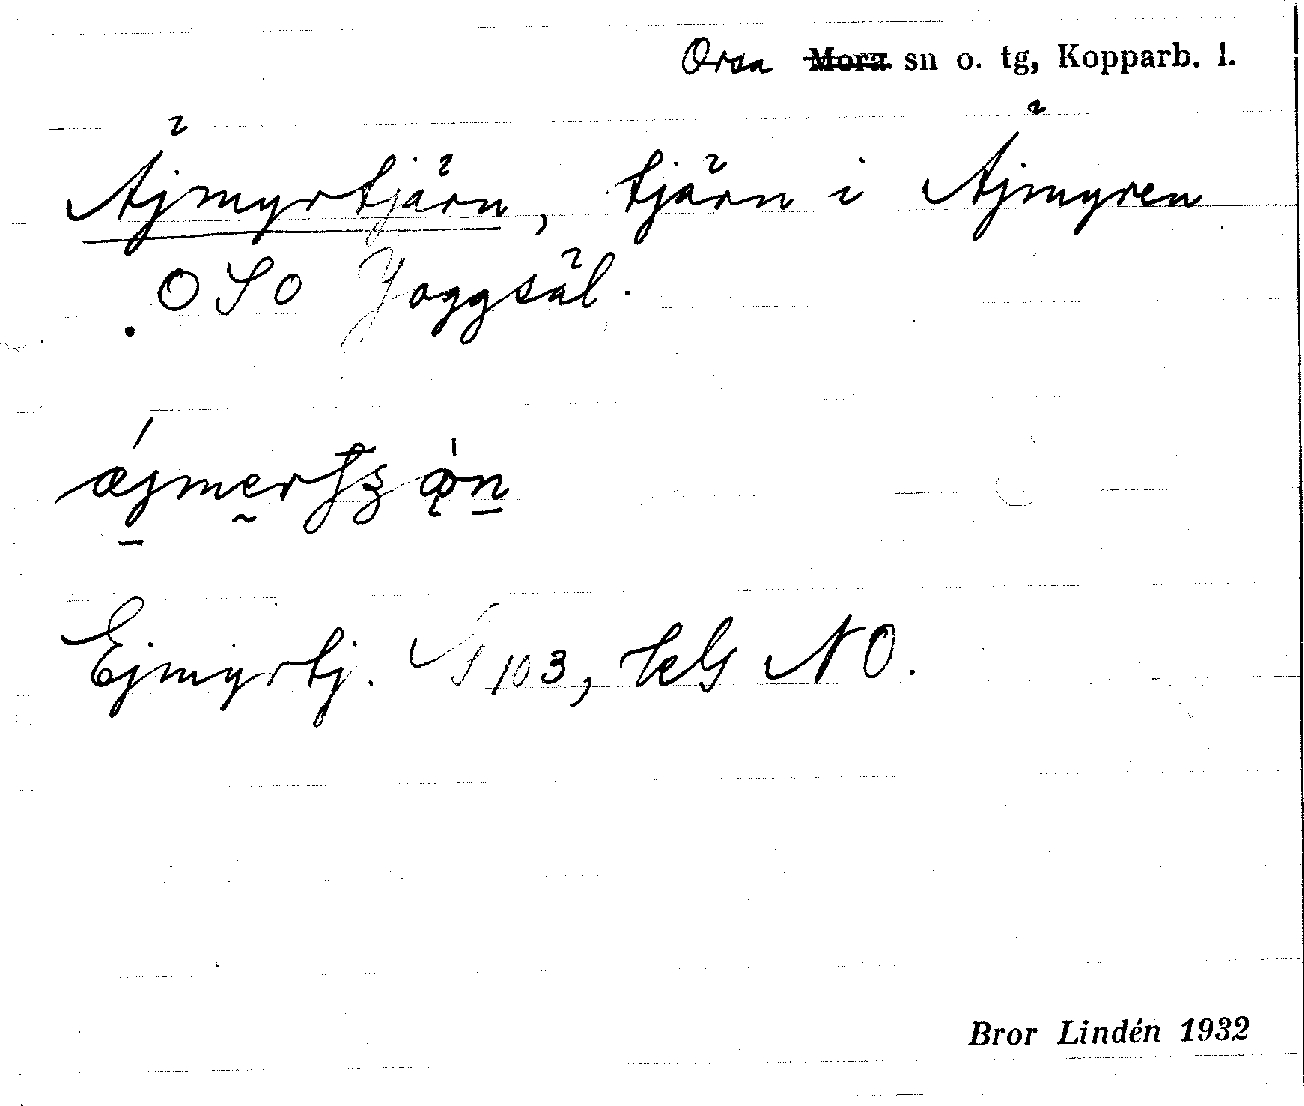 Orsa ~~Mora~~ sn o. tg, Kopparb. l.
Äjmyrtjärn, tjärn i Äjmyren
OSO Joggsäl.
Ejmyrtj. S 103, NO.
Bror Lindén 1932